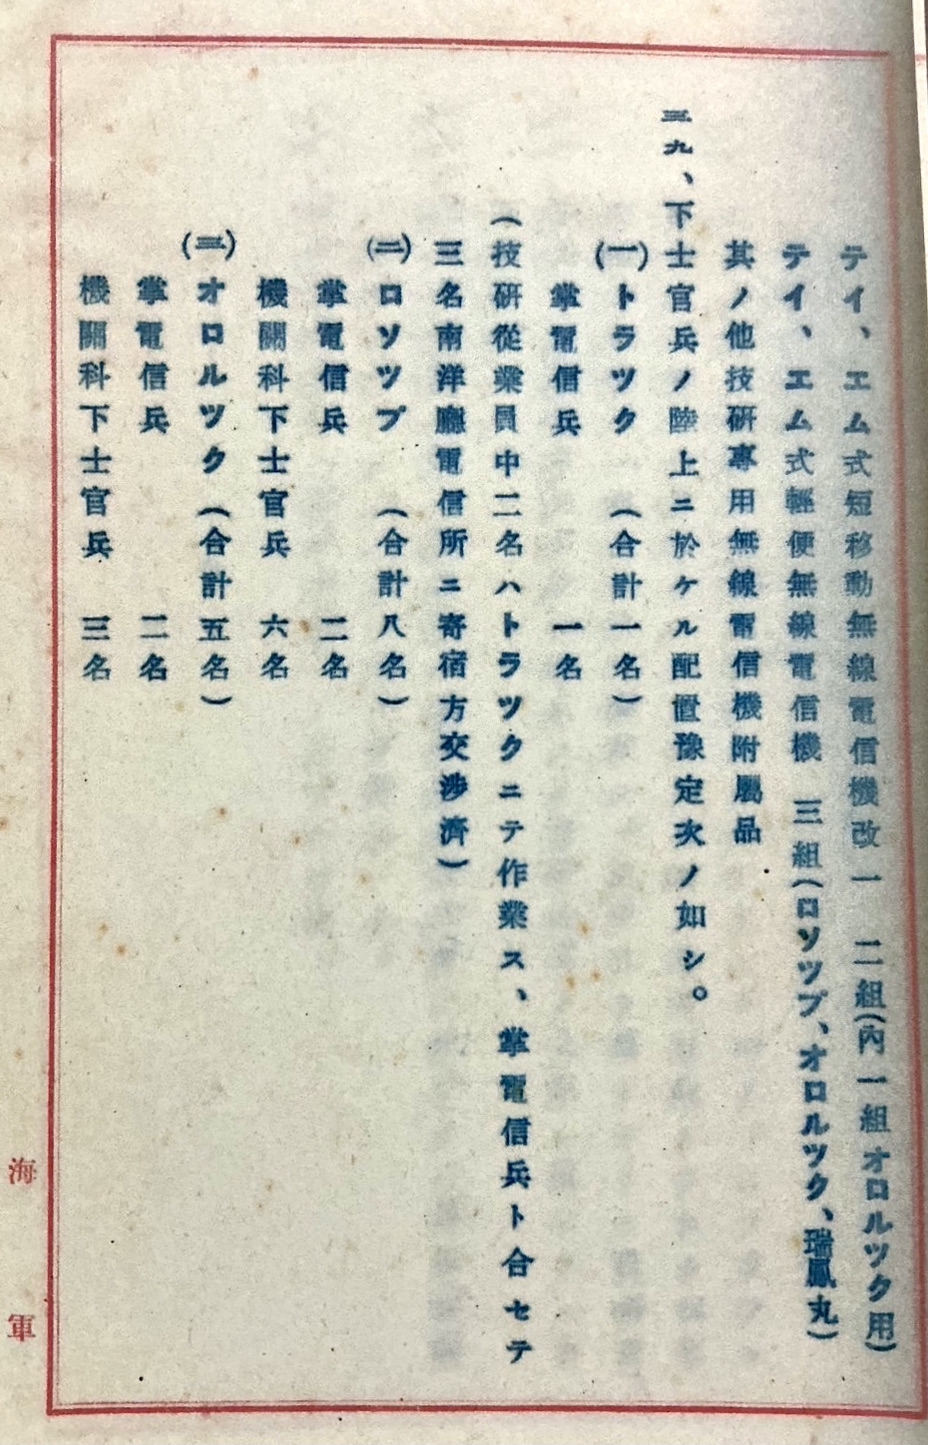 テイ、エム式短移動無線電信機改一　二組（內一組オロルツク用）
テイ、エム式輕便無線電信機　三組（ロソツプ、オロルツク、瑞鳳丸）
其ノ他技研專用無線電信機附屬品
三九、下士官兵ノ陸上ニ於ケル配置豫定次ノ如シ。
（一）トラツク　（合計一名）
掌電信兵　一名
（技研從業員中二名ハトラツクニテ作業ス、掌電信兵ト合セテ
三名南洋廳電信所ニ寄宿方交涉濟）
（二）ロソツプ　（合計八名）
掌電信兵　二名
機關科下士官兵　六名
（三）オロルツク（合計五名）
掌電信兵　二名
機關科下士官兵　三名
海軍